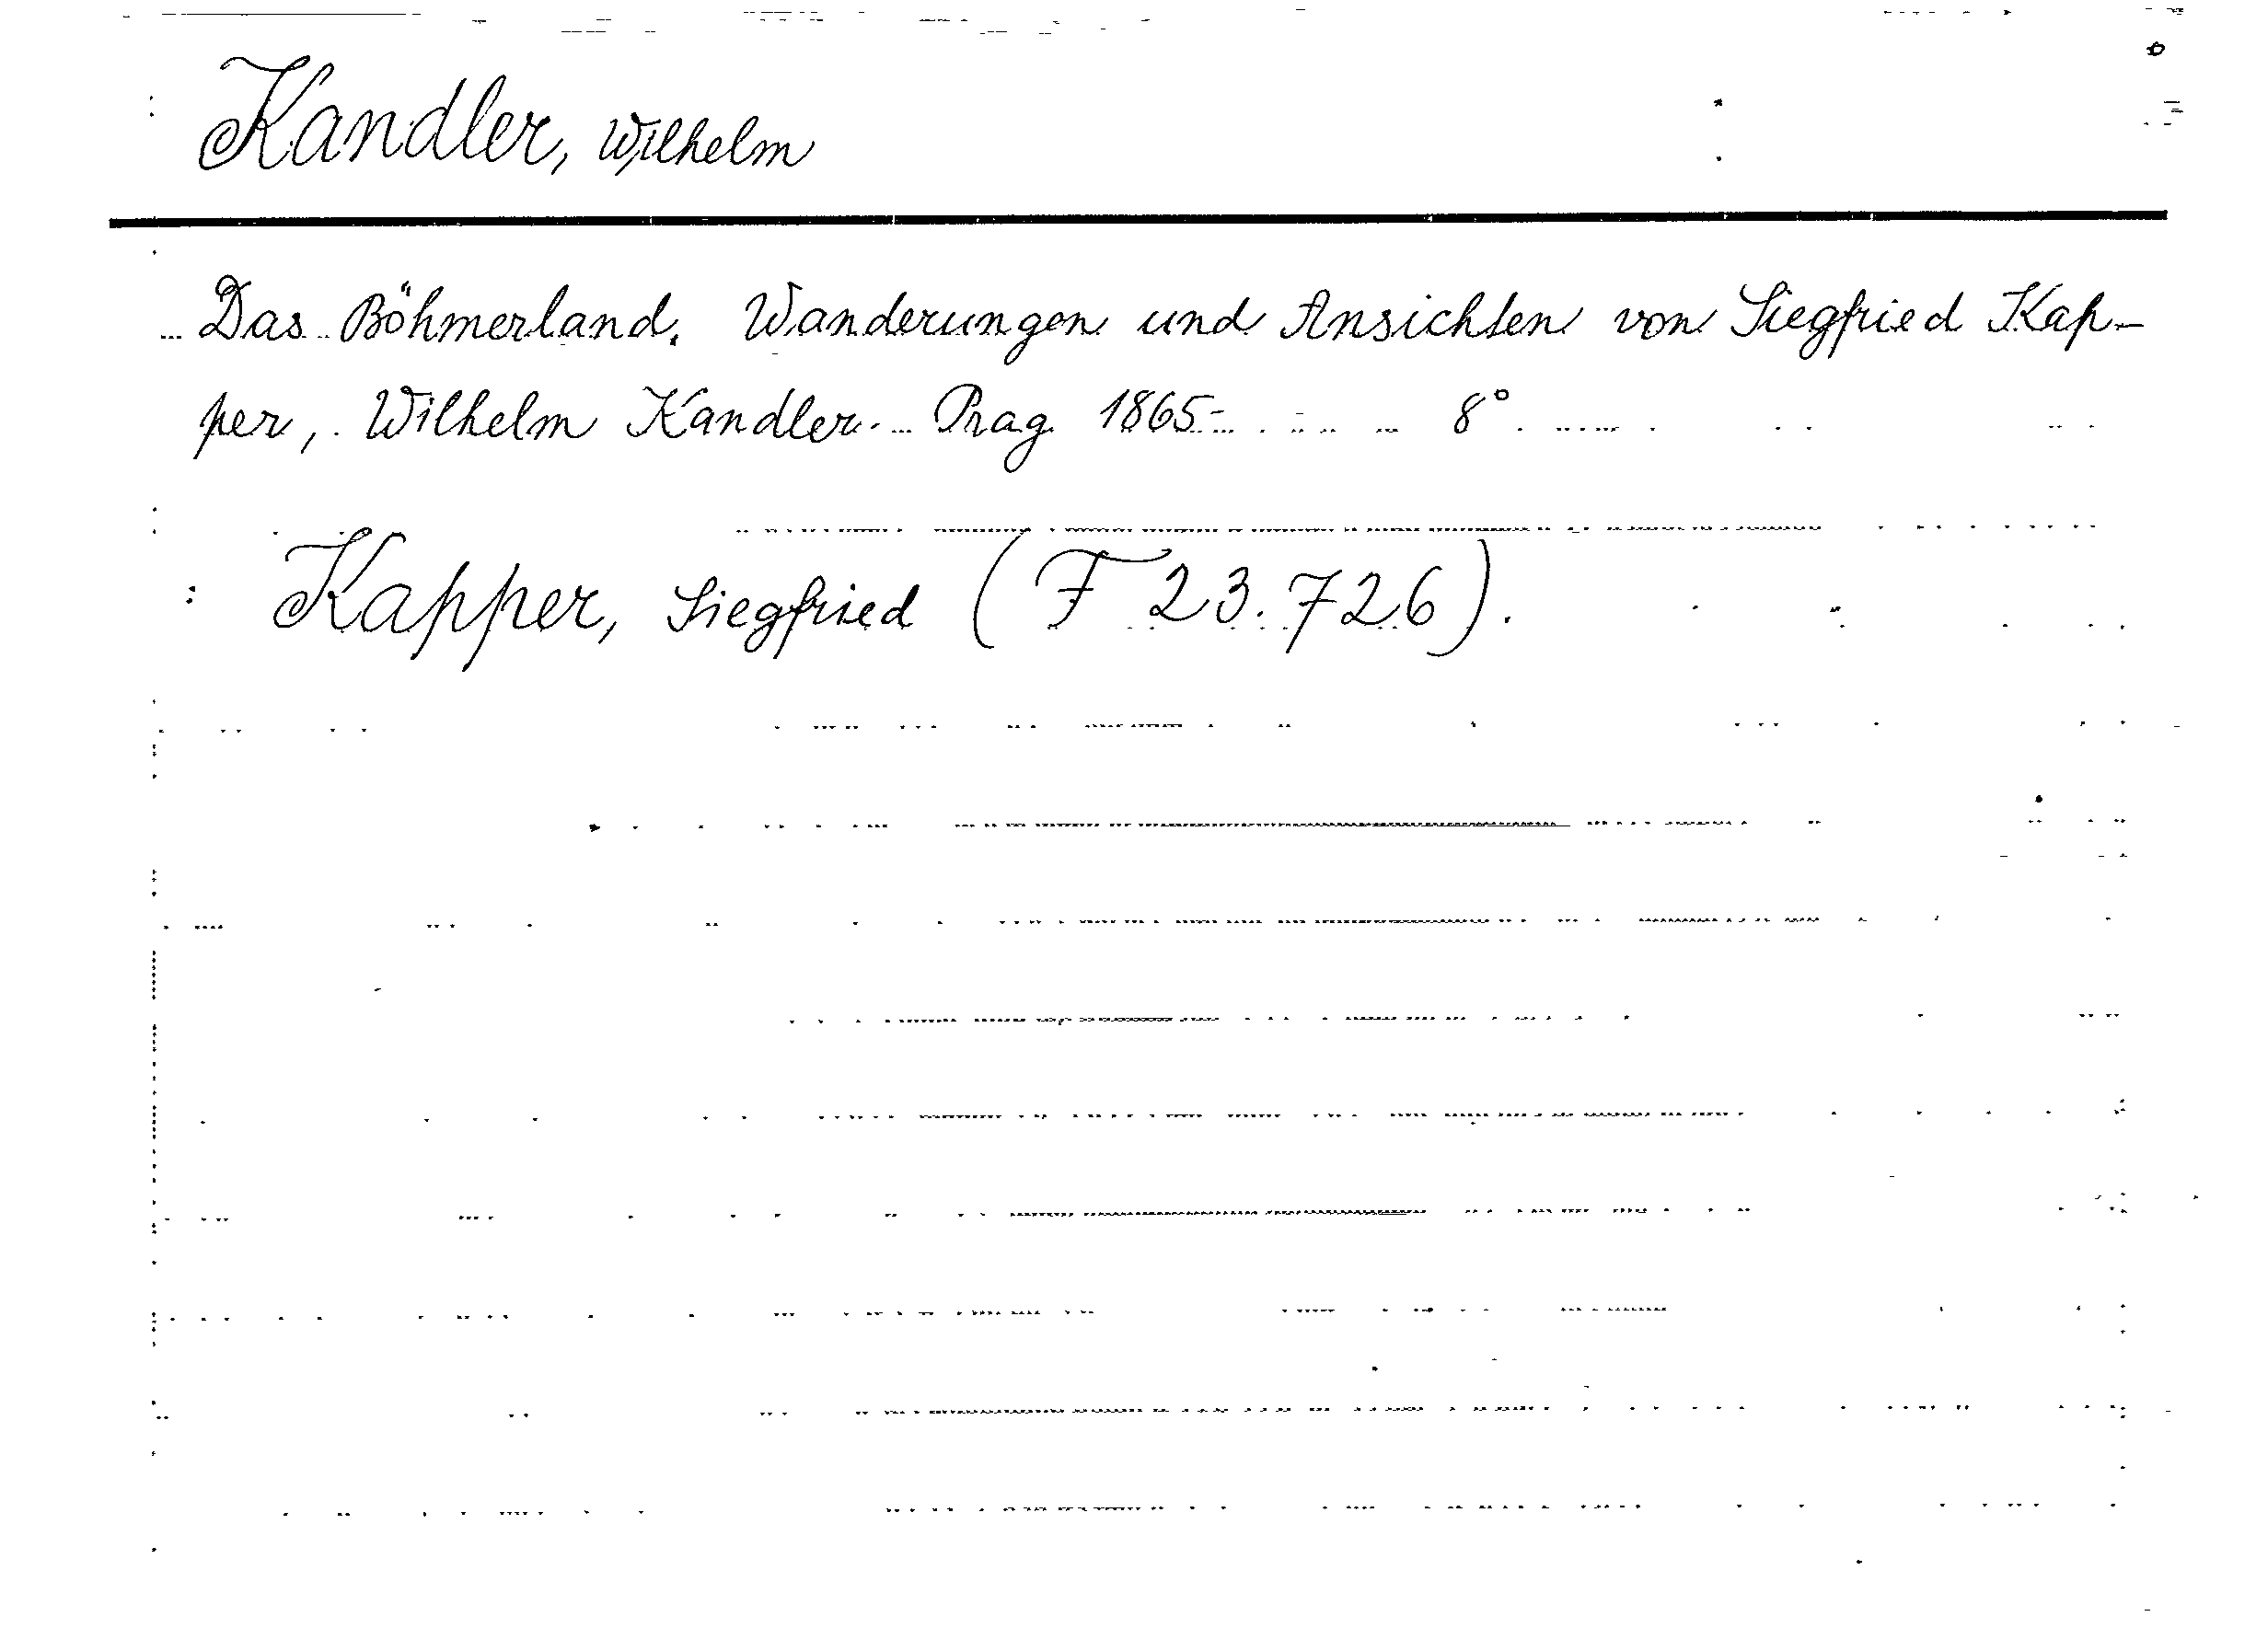 Kandler, Wilhelm
Das Böhmerland. Wanderungen und Ansichten von Siegfried Kap-
per, Wilhelm Kandler. Prag 1865- 8°
Kapper, Siegfried (F 23.726).